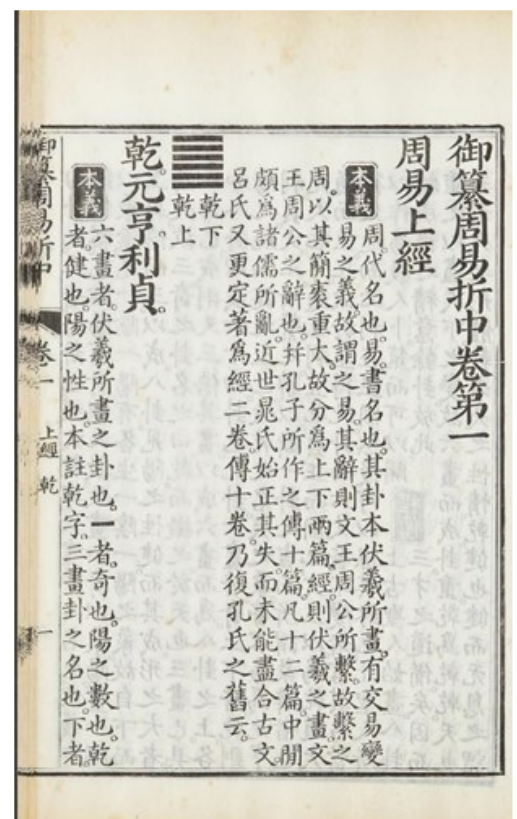 御纂周易折中卷第一
周易上經
本義 周。代名也。易。書名也。其卦本伏羲所畫。有交易變
易之義。故謂之易。其辭則文王周公所繫。故繫之
周。以其簡袠重大。故分爲上下兩篇。經則伏羲之畫。文
王周公之辭也。幷孔子所作之傳十篇。凡十二篇。中閒
頗爲諸儒所亂。近世晁氏始正其失。而未能盡合古文。
呂氏又更定著爲經二卷。傳十卷。乃復孔氏之舊云。
乾下
乾上
乾。元亨利貞。
本義 六畫者。伏羲所畫之卦也。一者。奇也。陽之數也。乾
者。健也。陽之性也。本註乾字。三畫卦之名也。下者。
御纂周易折中 卷一 上經 乾 一